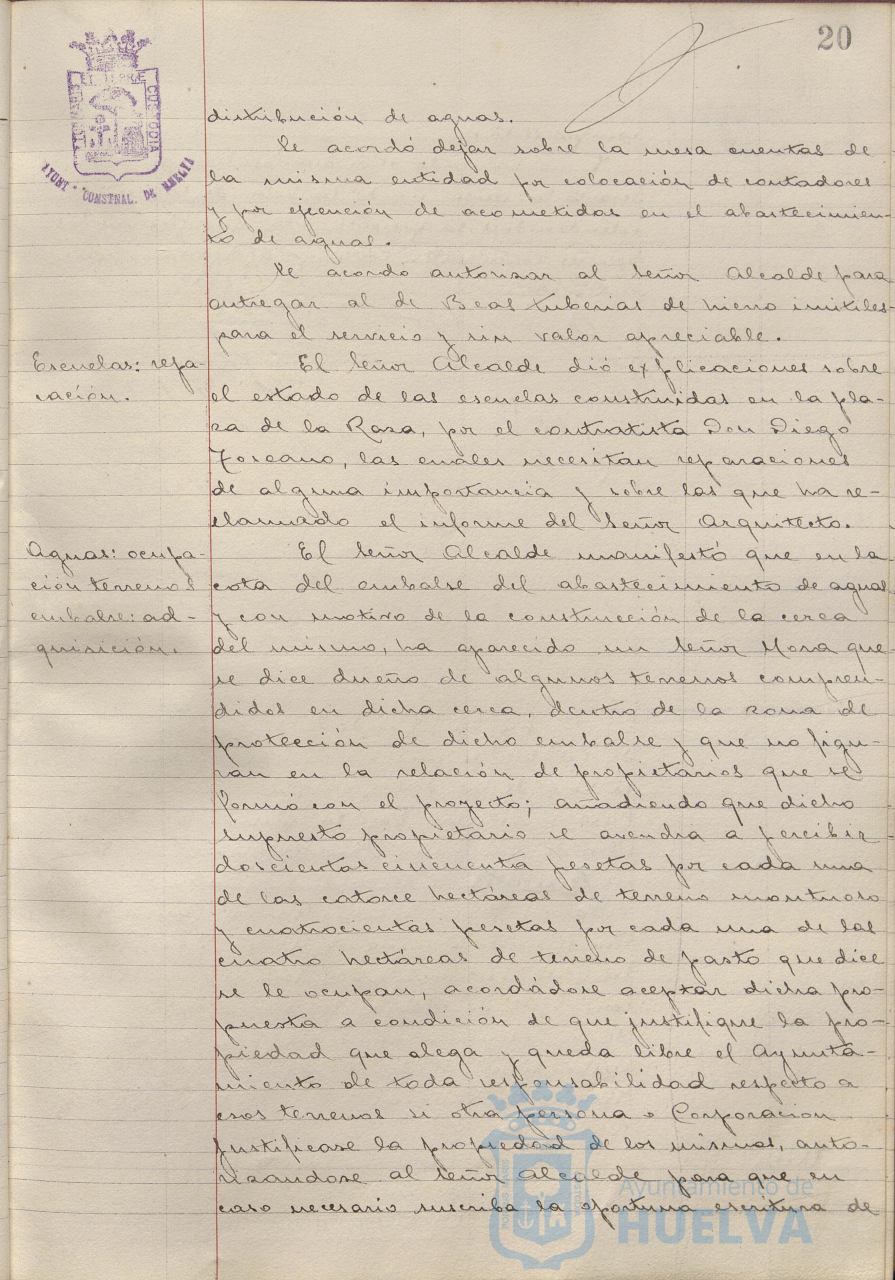 20
PORTUS MARIS
ET TERRÆ
CUSTODIA
AYUNT. CONSTNAL. DE HUELVA
distribución de aguas.
Se acordó dejar sobre la mesa cuentas de
la misma entidad por colocación de contadores
y por ejecución de acometidas en el abastecimien-
to de aguas.
Se acordó autorizar al Señor Alcalde para
entregar al de Beas tuberias de hierro inútiles
para el servicio y sin valor apreciable.
Escuelas: repa-
ración.
El Señor Alcalde dió explicaciones sobre
el estado de las escuelas construidas en la pla-
za de la Raza, por el contratista Don Diego
Toscano, las cuales necesitan reparaciones
de alguna importancia y sobre las que ha re-
clamado el informe del Señor Arquitecto.
Aguas: ocupa-
ción terrenos
embalse: ad-
quisición.
El Señor Alcalde manifestó que en la
cota del embalse del abastecimiento de aguas
y con motivo de la construcción de la cerca
del mismo, ha aparecido un Señor Mora que
se dice dueño de algunos terrenos compren-
didos en dicha cerca, dentro de la zona de
protección de dicho embalse y que no figu-
ran en la relación de propietarios que se
formó con el proyecto; añadiendo que dicho
supuesto propietario se avendra a percibir
doscientas cincuenta pesetas por cada una
de las catorce hectáreas de terreno montuoso
y cuatrocientas pesetas por cada una de las
cuatro hectáreas de terreno de pasto que dice
se le ocupan, acordándose aceptar dicha pro-
puesta a condición de que justifique la pro-
piedad que alega y queda libre el Ayunta-
miento de toda responsabilidad respecto a
esos terrenos si otra persona o Corporación
justificase la propiedad de los mismos, auto-
rizandose al Señor Alcalde para que en
caso necesario suscriba la oportuna escritura de
Ayuntamiento de
HUELVA